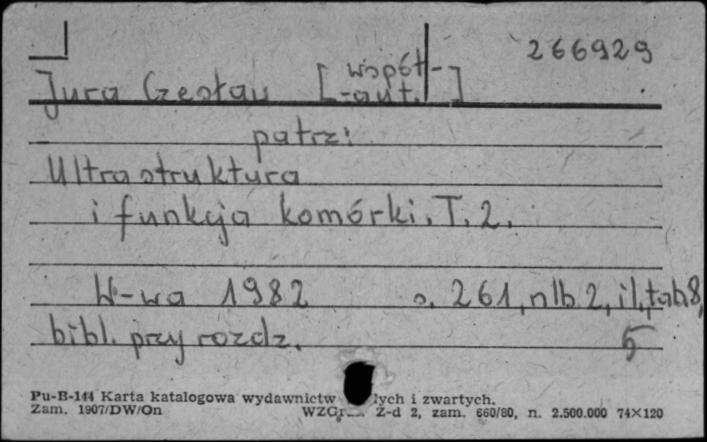 266929
Jura Czesław [współ-
-aut.]
patrz:
Ultrastruktura
i funkcja komórki. T. 2.
W-wa 1982 s. 261, nlb 2, il., tab. 8,
bibl. przy rozdz. 5
Pu-B-144 Karta katalogowa wydawnictw i zwartych.
Zam. 1907/DW/Dn Z-d 2, zam. 660/80, n. 2.500.000 74×120